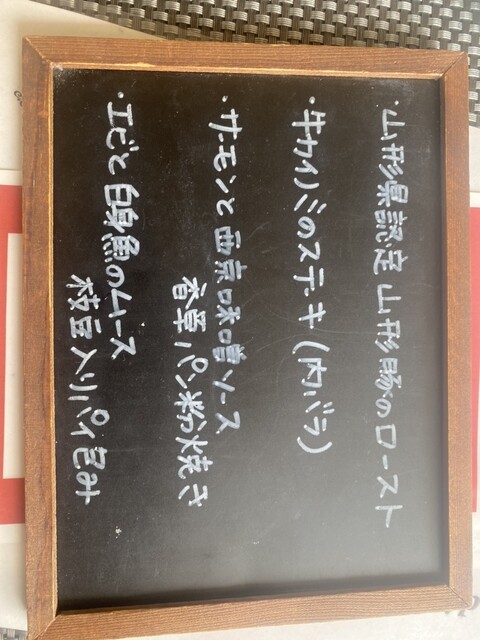 ・山形県認定 山形豚のロースト
・牛カイノミのステーキ (内バラ)
・サーモンと西京味噌ソース
香草パン粉焼き
・エビと白身魚のムース
枝豆入りパイ包み